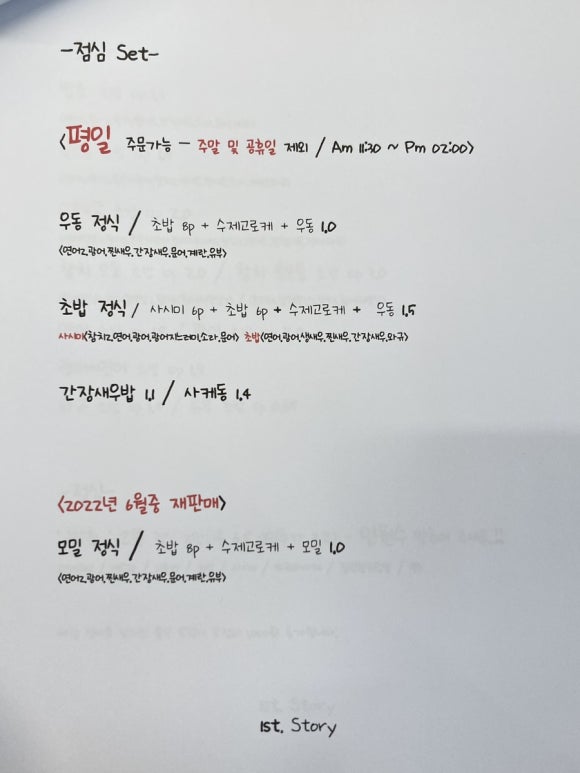 -점심 Set-
<평일 주문가능 - 주말 및 공휴일 제외 / Am 11:30 ~ Pm 02:00>
우동 정식 / 초밥 8p + 수제고로케 + 우동 1.0
<연어2,광어,찐새우,간장새우,문어,계란,유부>
초밥 정식 / 사시미 6p + 초밥 6p + 수제고로케 + 우동 1.5
사시미<참치2,연어,광어,광어지느러미,소라,문어> 초밥<연어,광어,생새우,찐새우,간장새우,와규>
간장새우밥 1.1 / 사케동 1.4
<2022년 6월중 재판매>
모밀 정식 / 초밥 8p + 수제고로케 + 모밀 1.0
<연어2,광어,찐새우,간장새우,문어,계란,유부>
1st. Story